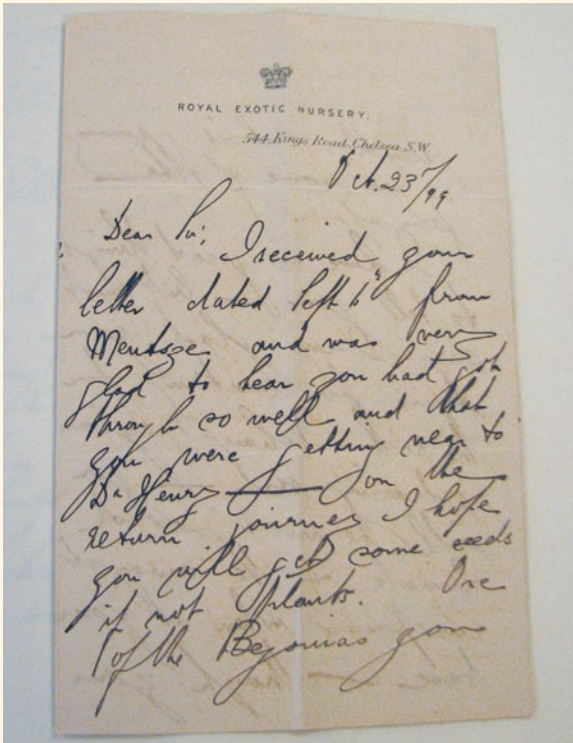 ROYAL EXOTIC NURSERY.
544, Kings Road, Chelsea. S.W.
Oct. 23/99
Dear Sir;
I received your
letter dated Sept 6th from
Mengtsze and was very
glad to hear you had got
through so well and that
you were getting near to
Dr Henry — on the
return journey I hope
you will get some seeds
if not plants. One
of the Begonias you